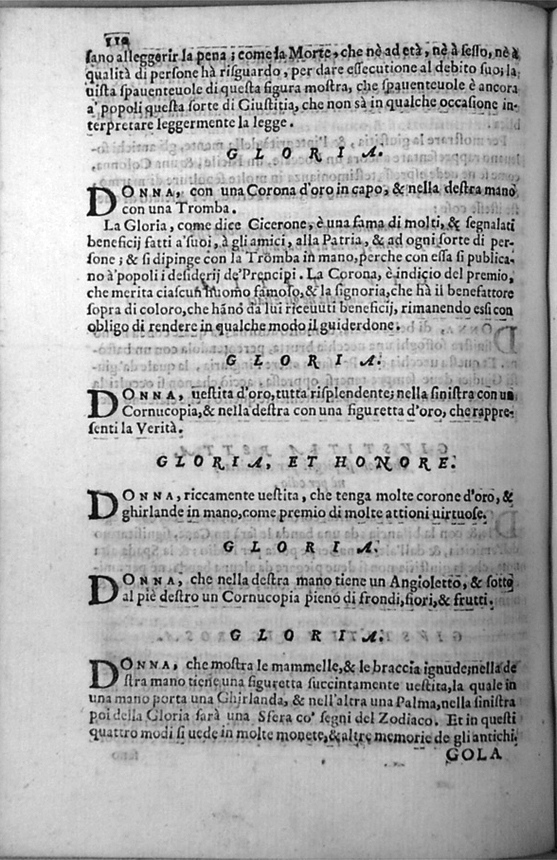 110
sano alleggerir la pena; come la Morte, che nè ad età, nè à sesso, nè à
qualità di persone hà risguardo, per dare essecutione al debito suo; la
uista spauenteuole di questa figura mostra, che spauenteuole è ancora
a' popoli questa sorte di Giustitia, che non sà in qualche occasione in-
terpretare leggermente la legge.
GLORIA.
DONNA, con una Corona d'oro in capo, & nella destra mano
con una Tromba.
La Gloria, come dice Cicerone, è una fama di molti, & segnalati
beneficij fatti a' suoi, à gli amici, alla Patria, & ad ogni sorte di per-
sone; & si dipinge con la Tromba in mano, perche con essa si publica-
no à' popoli i desiderij de' Prencipi. La Corona, è indicio del premio,
che merita ciascun huomo famoso, & la signoria, che hà il benefattore
sopra di coloro, che hãno da lui riceuuti beneficij, rimanendo essi con
obligo di rendere in qualche modo il guiderdone.
GLORIA.
DONNA, uestita d'oro, tutta risplendente; nella sinistra con un
Cornucopia, & nella destra con una figuretta d'oro, che rappre-
senti la Verità.
GLORIA, ET HONORE.
DONNA, riccamente uestita, che tenga molte corone d'oro, &
ghirlande in mano, come premio di molte attioni uirtuose.
GLORIA.
DONNA, che nella destra mano tiene un Angioletto, & sotto
al piè destro un Cornucopia pieno di frondi, fiori, & frutti.
GLORIA.
DONNA, che mostra le mammelle, & le braccia ignude; nella de
stra mano tiene una figuretta succintamente uestita, la quale in
una mano porta una Ghirlanda, & nell'altra una Palma, nella sinistra
poi della Gloria sarà una Sfera co' segni del Zodiaco. Et in questi
quattro modi si uede in molte monete, & altre memorie de gli antichi.
GOLA